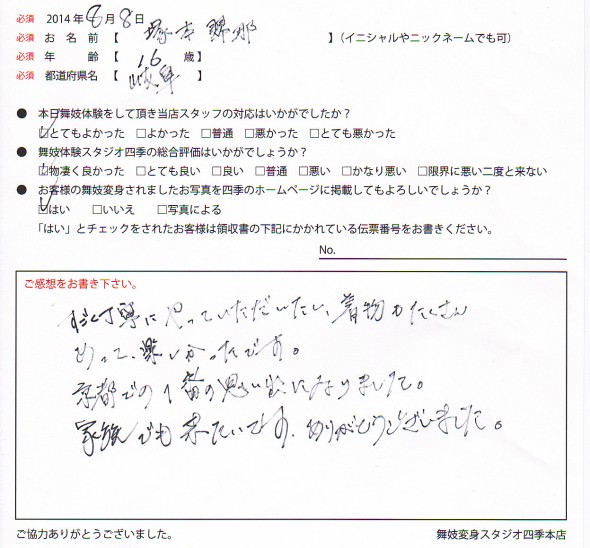 必須 2014年8月8日
必須 お名前【 塚本 那 】(イニシャルやニックネームでも可)
必須 年齢【 16 歳】
必須 都道府県名【 岐阜 】
● 本日舞妓体験をして頂き当店スタッフの対応はいかがでしたか?
☑とてもよかった □よかった □普通 □悪かった □とても悪かった
● 舞妓体験スタジオ四季の総合評価はいかがでしょうか?
☑物凄く良かった □とても良い □良い □普通 □悪い □かなり悪い □限界に悪い二度と来ない
● お客様の舞妓変身されましたお写真を四季のホームページに掲載してもよろしいでしょうか?
☑はい □いいえ □写真による
「はい」とチェックをされたお客様は領収書の下記にかかれている伝票番号をお書きください。
No.
ご感想をお書き下さい。
すごく丁寧にやっていただいたし、着物もたくさん
あって、楽しかったです。
京都での1番の思い出になりました。
家族でも来たいです。ありがとうございました。
ご協力ありがとうございました。 舞妓変身スタジオ四季本店